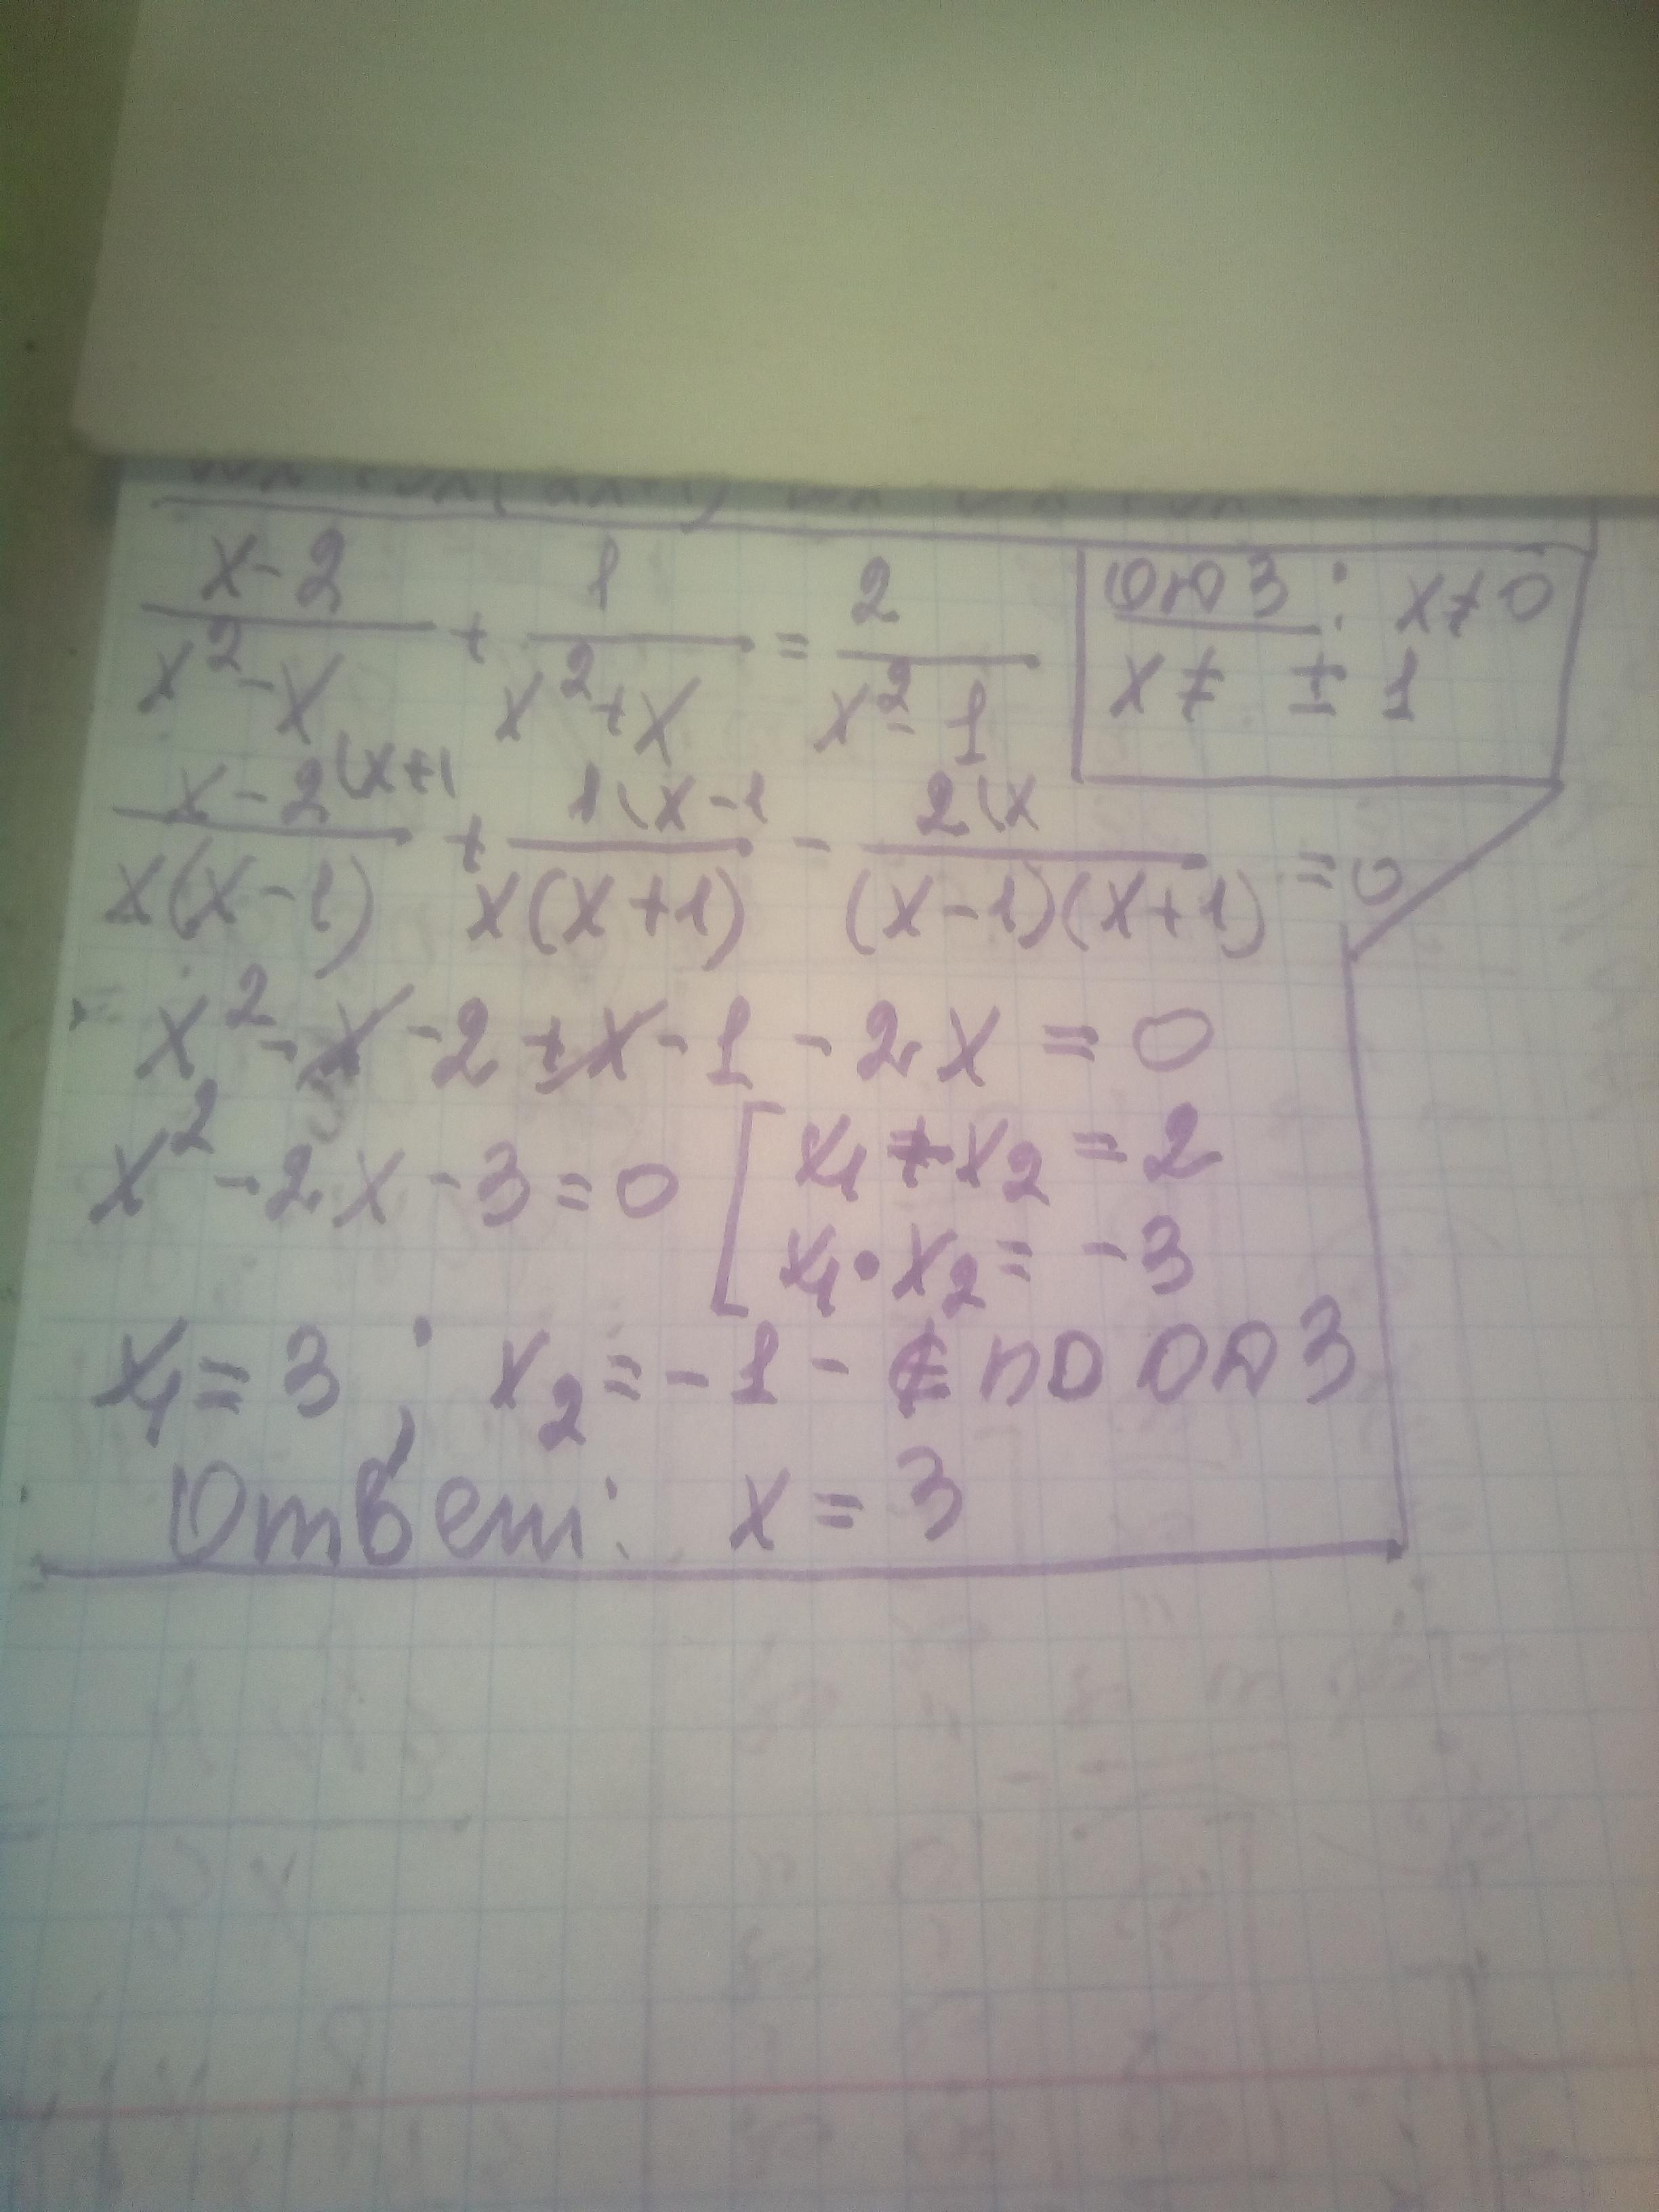 x-2/x²-x + 1/x²+x = 2/x²-1
ОДЗ: x≠0
x≠ ±1
x-2(x+1/x(x-1) + 1(x-1/x(x+1) - 2(x/(x-1)(x+1) =0
x²-x-2+x-1-2x=0
x²-2x-3=0 [x₁+x₂=2
x₁•x₂=-3
x₁=3; x₂=-1-∉ по ОДЗ
Ответ: x=3